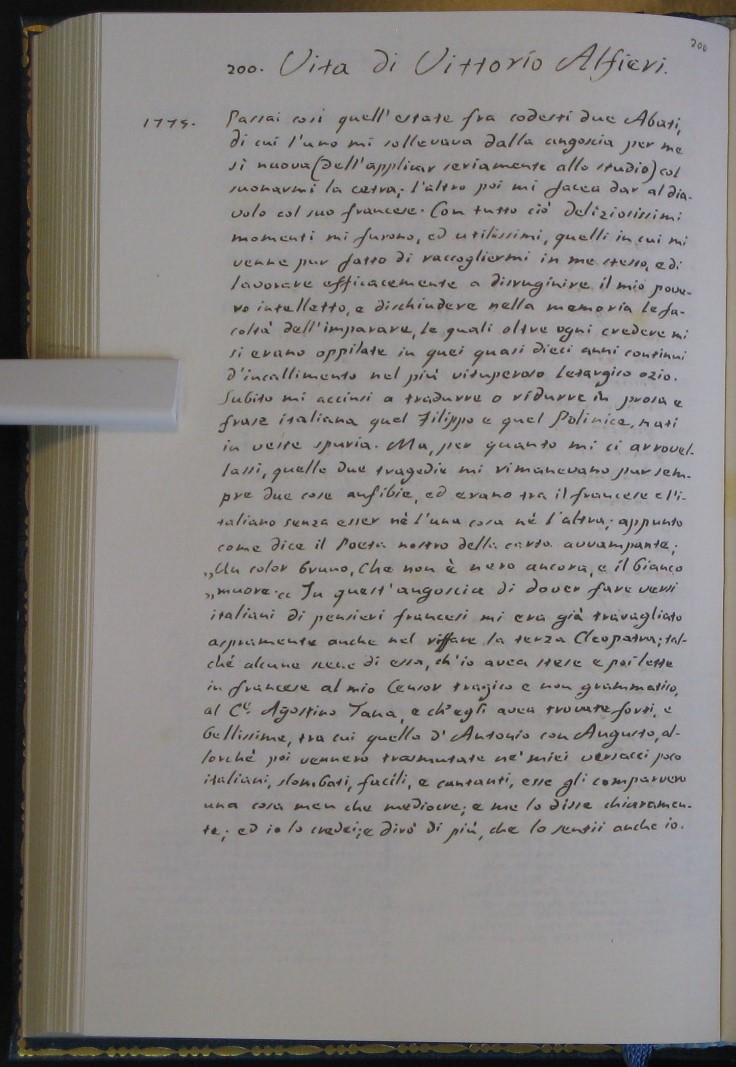 200
200. Vita di Vittorio Alfieri.
1775. Passai così quell'estate fra codesti due Abati,
di cui l'uno mi sollevava dalla angoscia per me
sì nuova (dell'applicar seriamente allo studio) col
suonarmi la cetra; l'altro poi mi facea dar al dia-
volo col suo francese. Con tutto ciò deliziosissimi
momenti mi furono, ed utilissimi, quelli in cui mi
venne pur fatto di raccogliermi in me stesso, e di
lavorare efficacemente a disruginire il mio pove-
ro intelletto, e dischiudere nella memoria le fa-
coltà dell'imparare, le quali oltre ogni credere mi
si erano oppilate in quei quasi dieci anni continui
d'incallimento nel più vituperoso letargico ozio.
Subito mi accinsi a tradurre o ridurre in prosa e
frase italiana quel Filippo e quel Polinice, nati
in veste spuria. Ma, per quanto mi ci arrovel-
lassi, quelle due tragedie mi rimanevano pur sem-
pre due cose anfibie, ed erano tra il francese e l'i-
taliano senza esser nè l'una cosa nè l'altra; appunto
come dice il Poeta nostro della carta avvampante;
„Un color bruno, Che non è nero ancora, e il bianco
„muore.“ In quest'angoscia di dover fare versi
italiani di pensieri francesi mi era già travagliato
aspramente anche nel riffare la terza Cleopatra; tal-
chè alcune scene di essa, ch'io avea stese e poi lette
in francese al mio Censor tragico e non grammatico,
al C.te Agostino Tana, e ch'egli avea trovate forti, e
bellissime, tra cui quella d'Antonio con Augusto, al-
lorchè poi vennero trasmutate ne' miei versacci poco
italiani, slombati, facili, e cantanti, esse gli comparvero
una cosa men che mediocre; e me lo disse chiaramen-
te; ed io lo credei; e dirò di più, che lo sentii anche io.